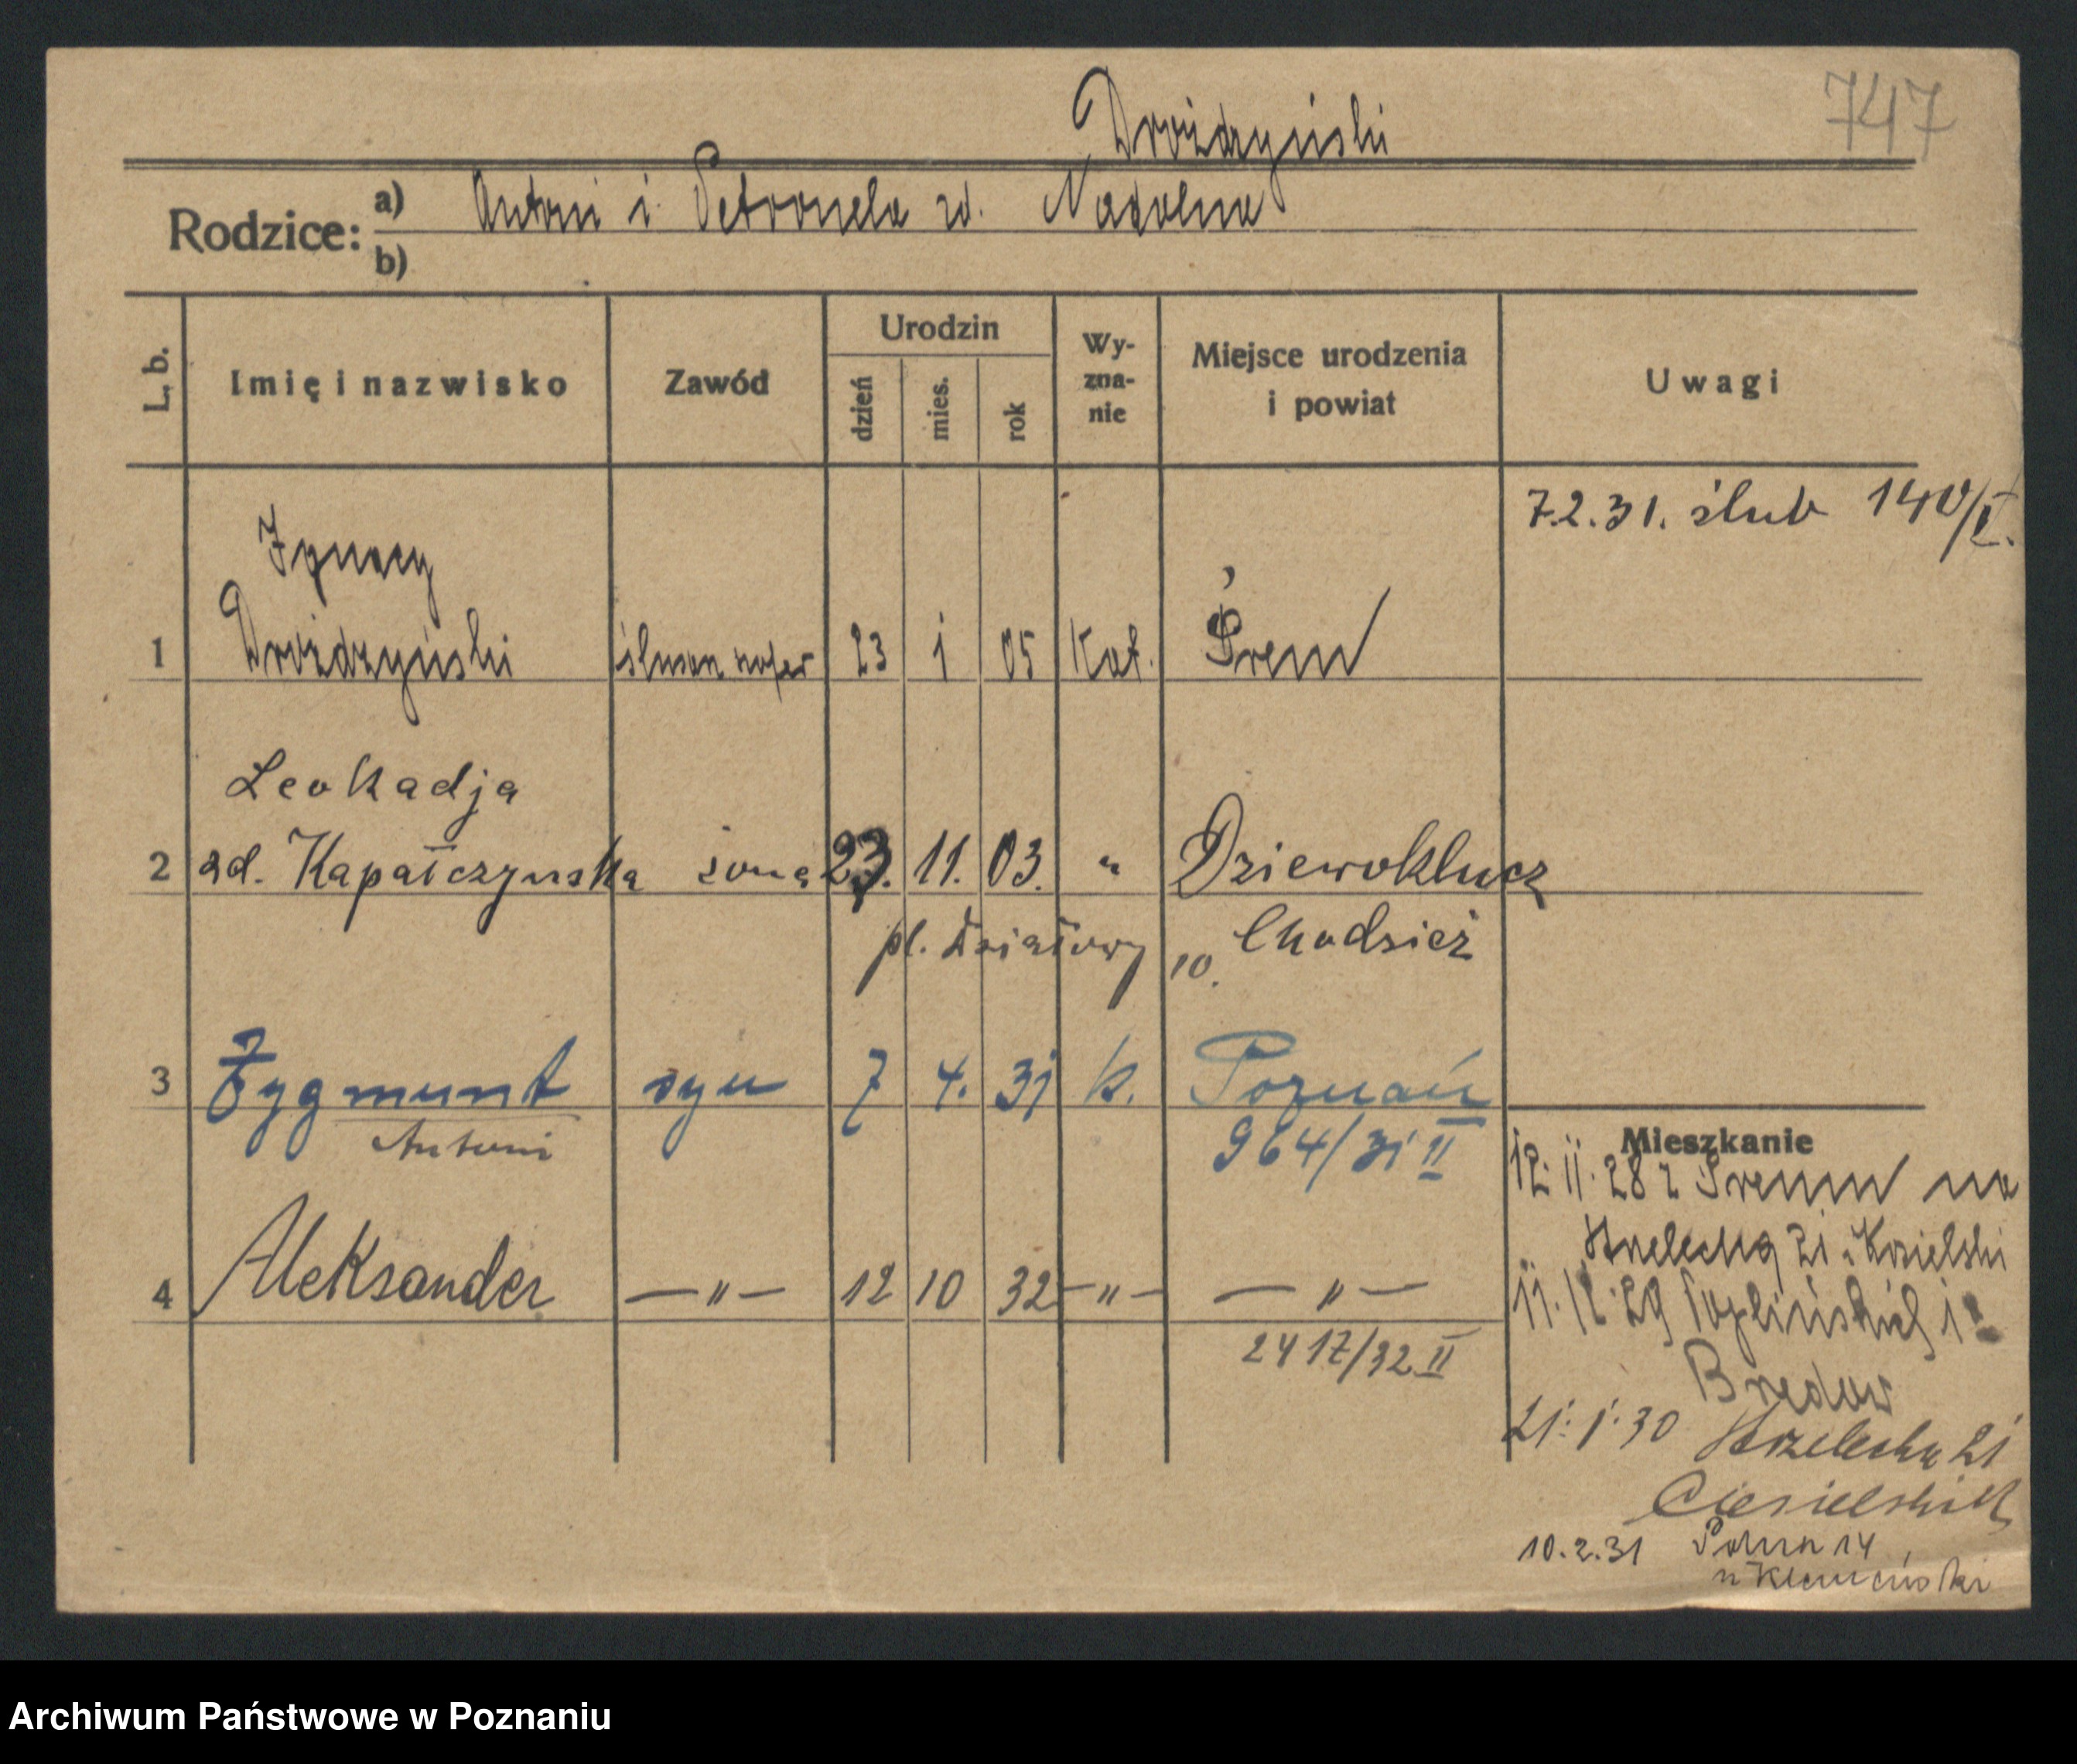 747
Drożdzyński
Rodzice: a) Antoni i Petronela zd. Nadolna
b)
L. b. Imię i nazwisko Zawód Urodzin dzień mies. rok Wyznanie Miejsce urodzenia i powiat Uwagi
7.2.31. ślub 140/I.
Ignacy
1 Drożdzyński ślusarz 23 1 05 Kat. Śrem
Leokadja
2 zd. Kapałczynska żona 23. 11. 03. " Dziewoklucz
pl. Działowy 10. Chodzież
3 Zygmunt syn 7 4. 31 k. Poznań
Antoni 964/31 II
Mieszkanie
12. 11. 28 z Śremu na
4 Aleksander — " — 12 10 32 — " — — " —
Strzelecka 21
11. 12. 29
2417/32 II
Bredow
21. 1. 30 Strzelecka 21
Ciesielski
10.2.31 Polna 14